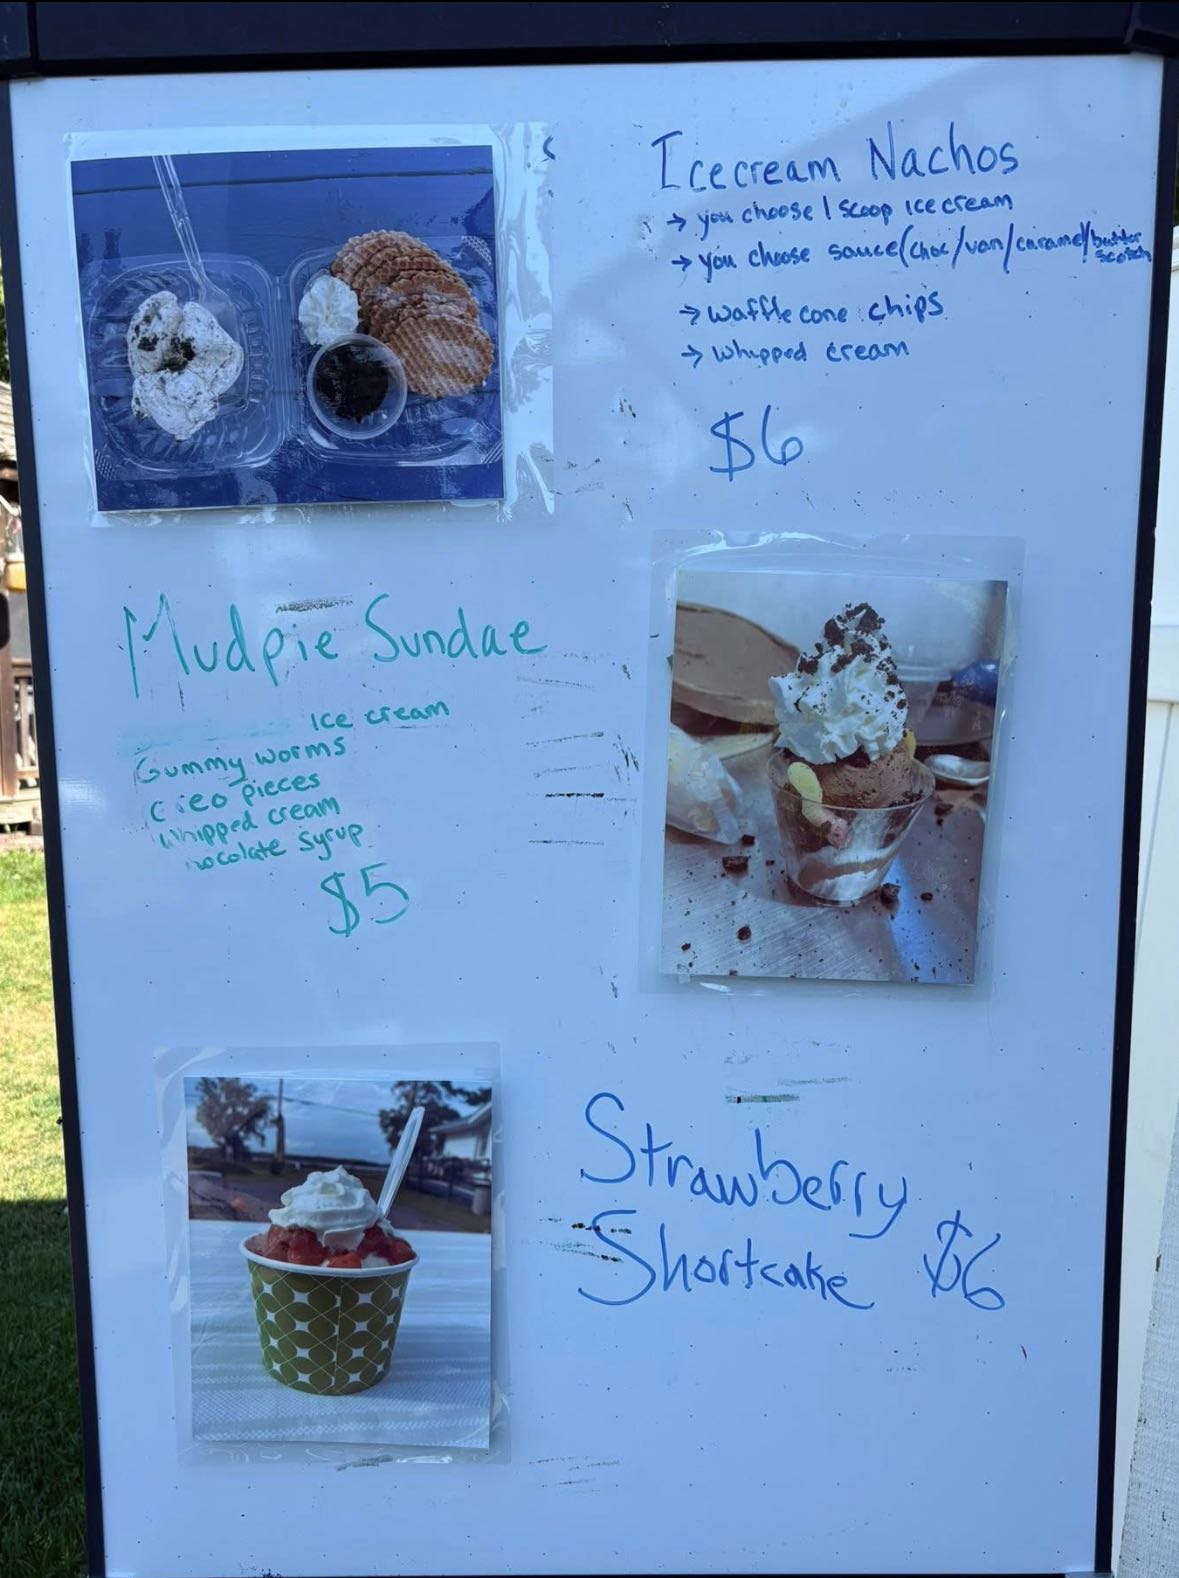 Icecream Nachos
→ you choose 1 scoop ice cream
→ you choose sauce (choc/van/caramel/butter scotch
→ waffle cone chips
→ whipped cream
$6
Mudpie Sundae
Ice cream
Gummy worms
C reo pieces
whipped cream
hocolate syrup
$5
Strawberry
Shortcake $6